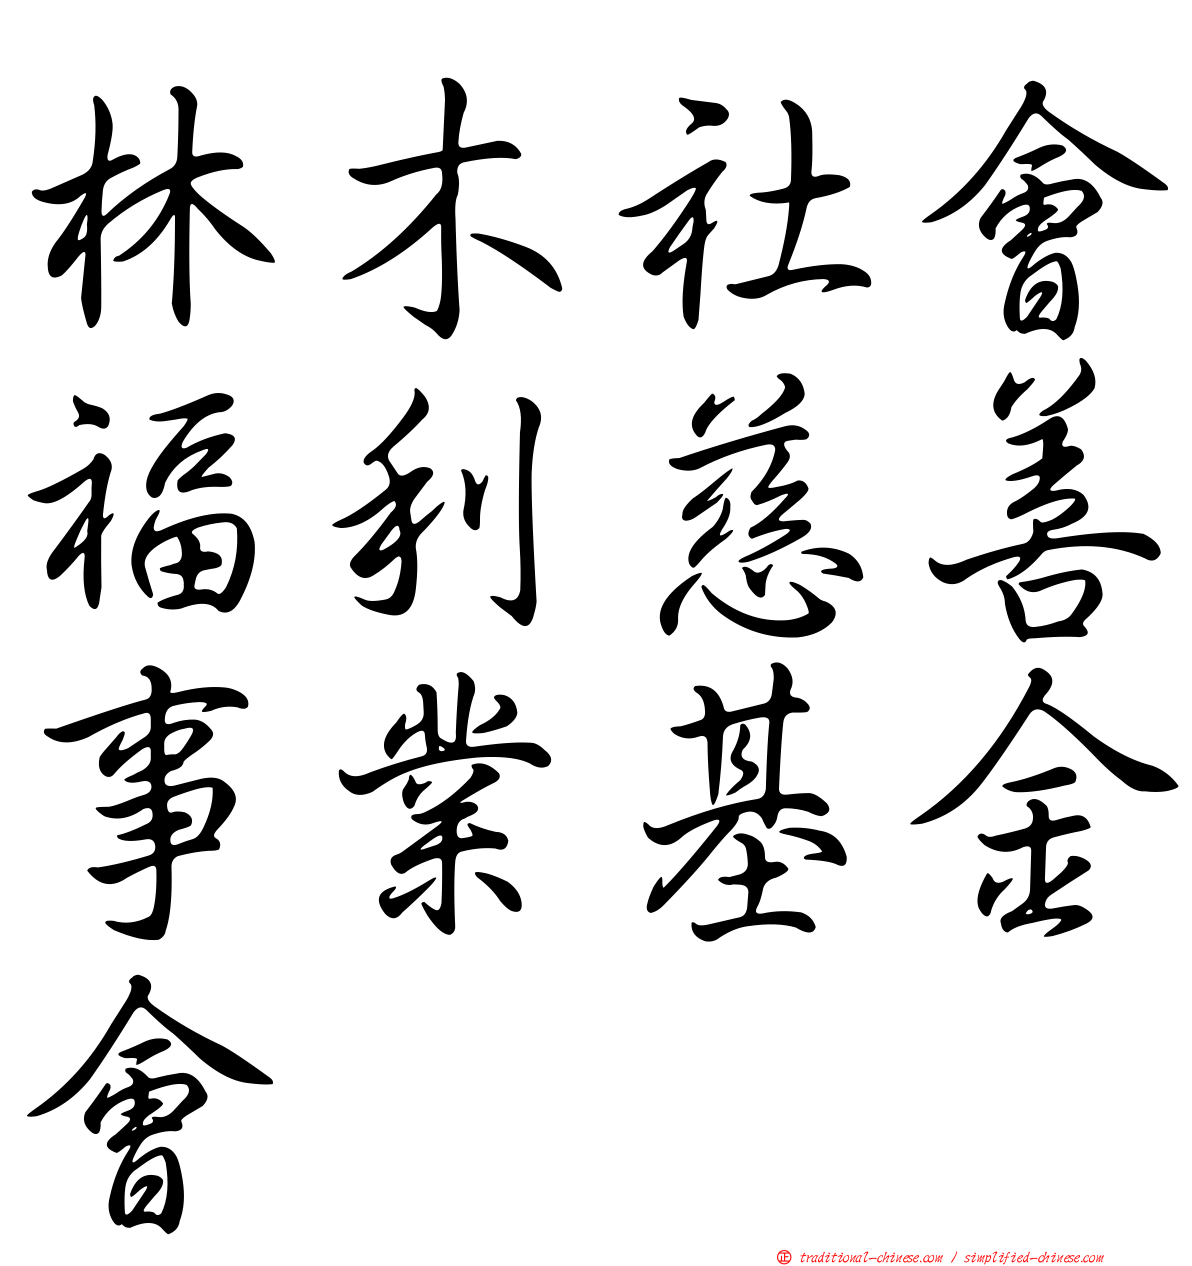 林木社會
福利慈善
事業基金
會
正 traditional-chinese.com / simplified-chinese.com